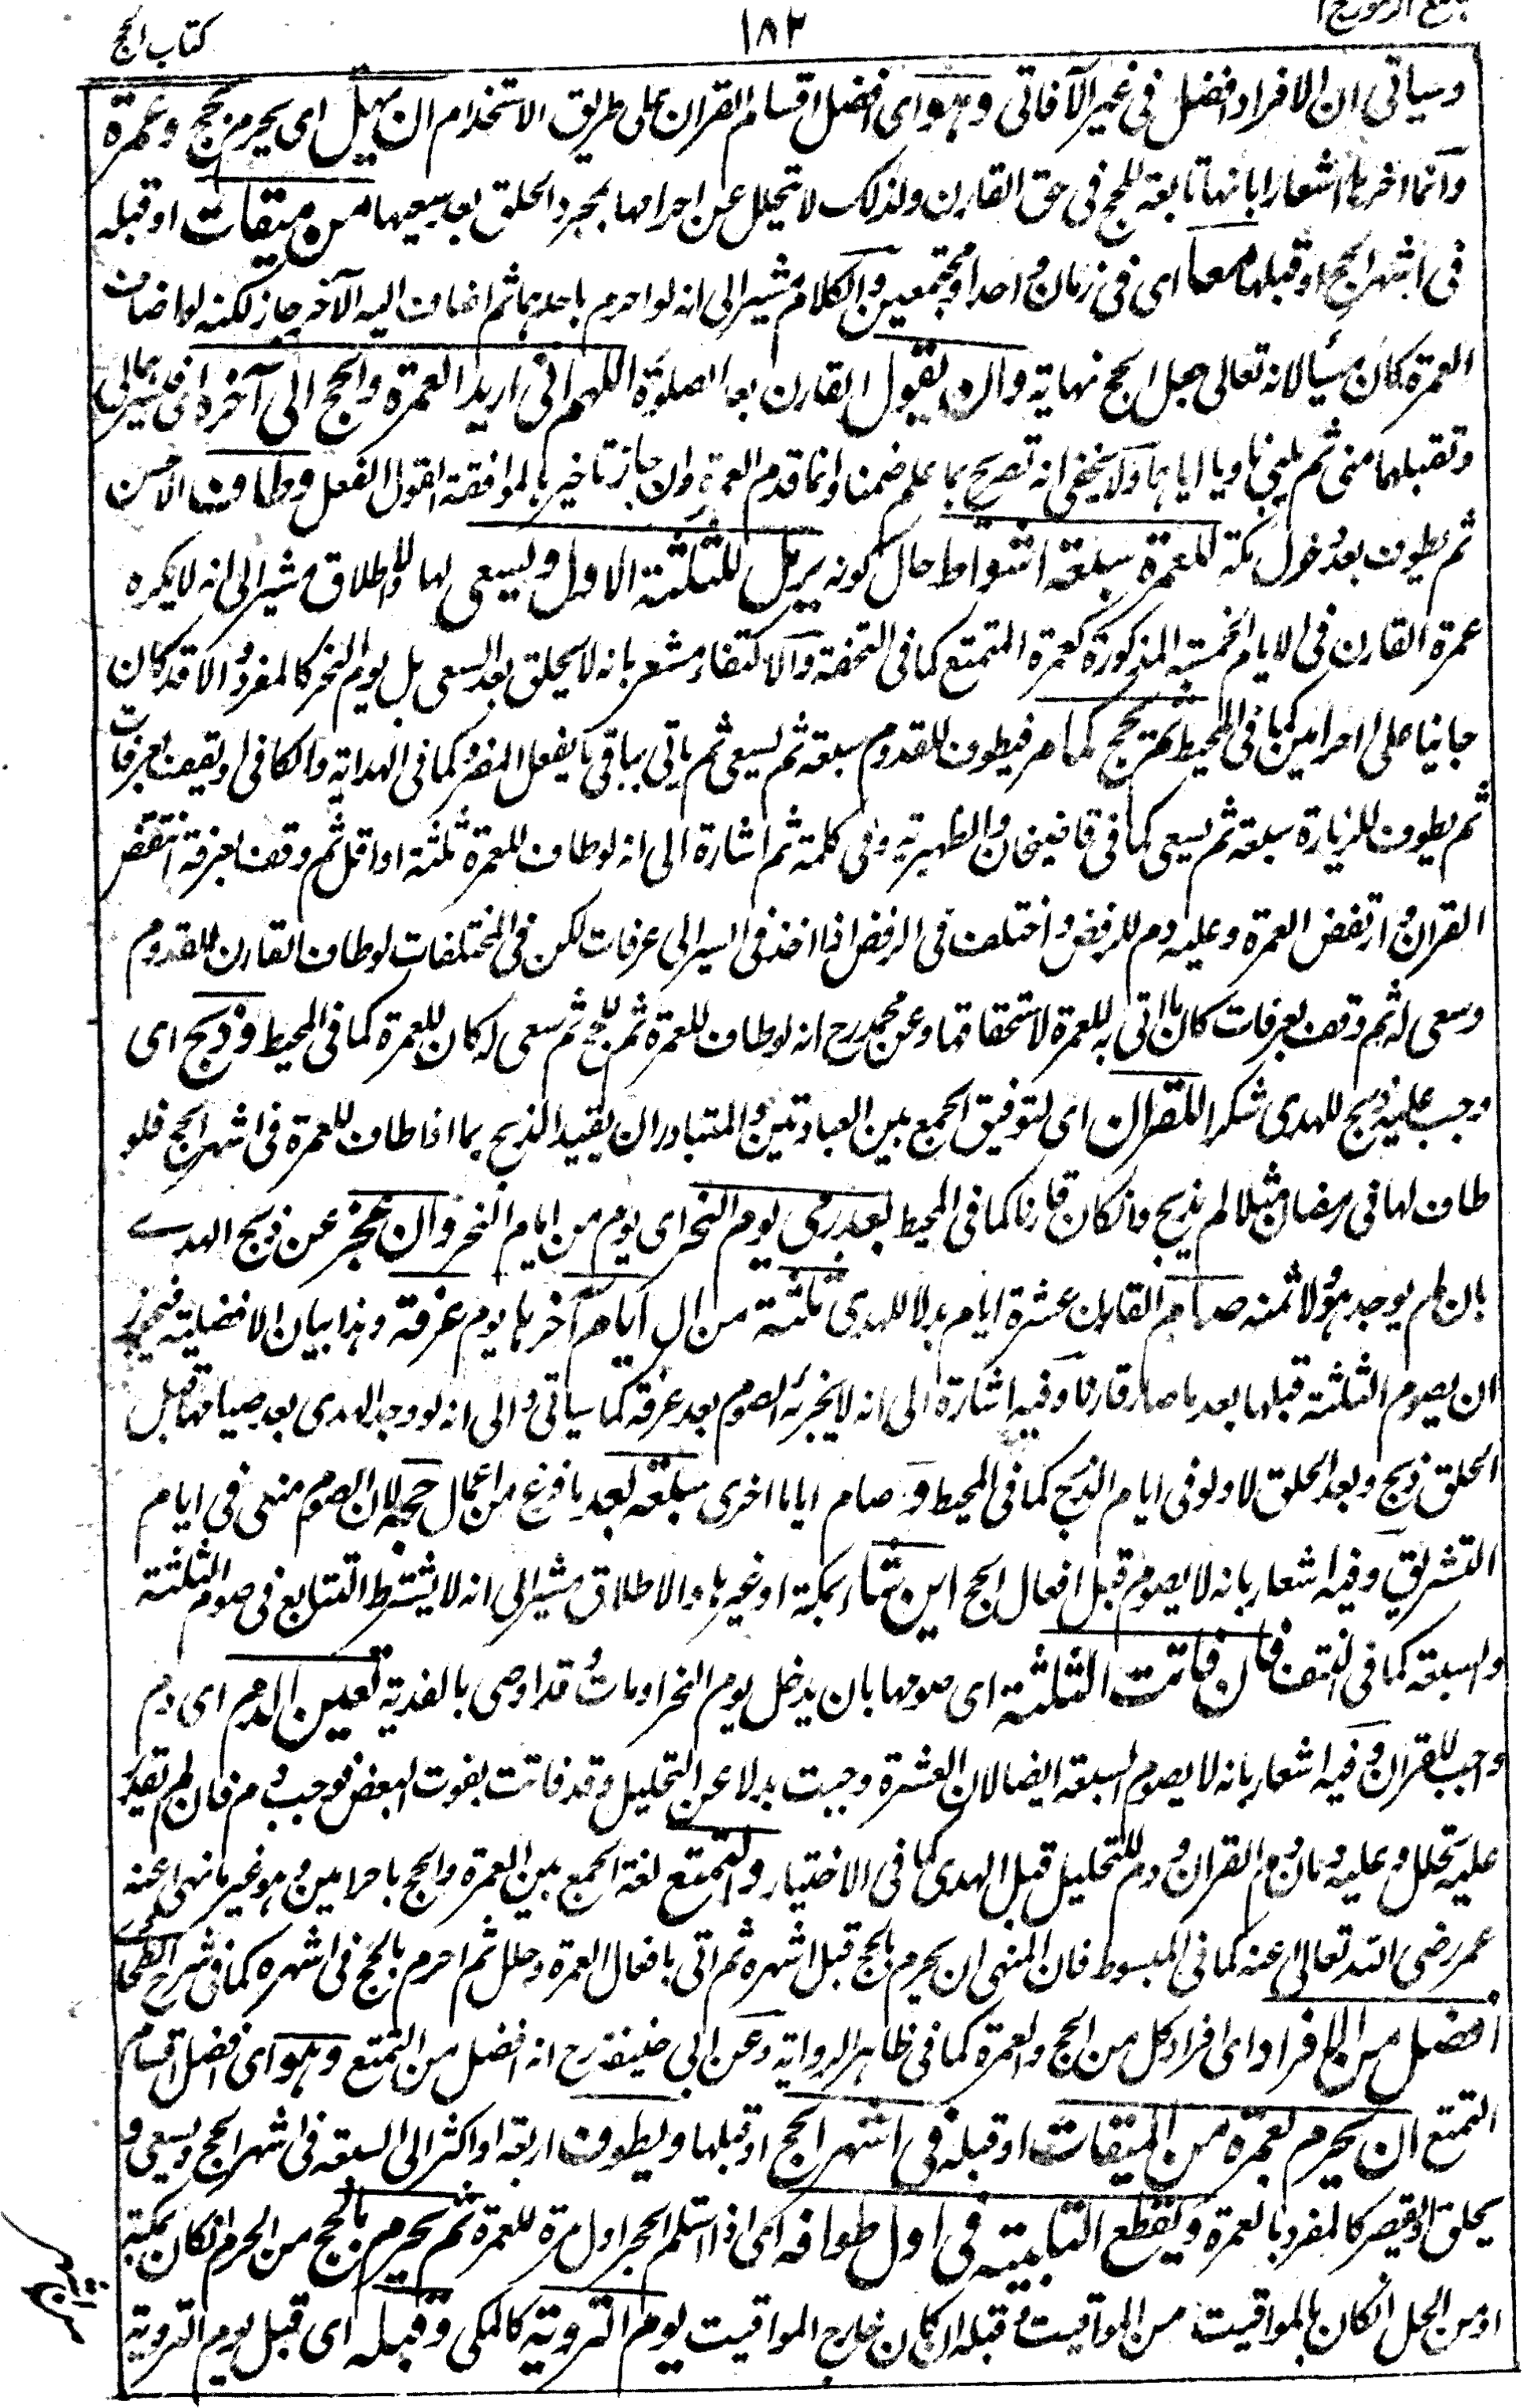 كتاب الحج ١٨٢ جامع الرموز ج ١
وسياتى ان الافراد افضل فى غير الآفاقى وهو اى افضل اقسام القران على طريق الاستخدام ان يهل اى يحرم بحج وعمرة
وانما اخرها اشعارا بانها تابعة للحج فى حق القارن ولذلك لا يتحلل عن احرامها بمجرد الحلق بعد سعيها من ميقات او قبله
فى اشهر الحج او قبلها معا اى فى زمان واحد او مجتمعين والكلام مشير الى انه لو احرم باحدهما ثم اضاف اليه الآخر جاز لكنه لو اضاف
العمرة كان مسيئا لانه تعالى جعل الحج نهاية وان يقول القارن بعد الصلوة اللهم انى اريد العمرة والحج الى آخره اى فيسرهما لى
وتقبلهما منى ثم يلبى ناويا اياهما ولا يخفى انه تصريح بما علم ضمنا وانما قدم العمرة وان جاز تاخيرها لموافقة القول الفعل وطاف الاحسن
ثم يطوف بعد دخول مكة للعمرة سبعة اشواط حال كونه يرمل للثلثة الاول ويسعى لها والاطلاق مشير الى انه لا يكره
عمرة القارن فى الايام الخمسة المذكورة كعمرة المتمتع كما فى التحفة والاكتفاء مشعر بانه لا يحلق بعد السعى بل يوم النحر كالمفرد والا قد كان
جانيا على احرامين كما فى المحيط ثم يحج كما مر فيطوف للقدوم سبعة ثم يسعى ثم ياتى بباقى ما يفعل المفرد كما فى الهداية والكافى او يقف بعرفات
ثم يطوف للزيارة سبعة ثم يسعى كما فى قاضيخان والظهيرية وفى كلمة ثم اشارة الى انه لو طاف للعمرة ثلثة او اقل ثم وقف بعرفة انتقض
القران وارتفض العمرة وعليه دم للرفض واختلف فى الرفض اذا اخذ فى السير الى عرفات لكن فى المختلفات لو طاف القارن للقدوم
وسعى له ثم وقف بعرفات كان ما اتى به للعمرة لاستحقاقها وعن محمد رح انه لو طاف للعمرة ثم للحج ثم سعى له كان للعمرة كما فى المحيط وذبح اى
وجب عليه ذبح للهدى شكرا للقران اى لتوفيق الجمع بين العبادتين والمتبادر ان يقيد الذبح بما اذا طاف للعمرة فى اشهر الحج فلو
طاف لها فى رمضان مثلا لم يذبح وان كان قارنا كما فى المحيط بعد رمى يوم النحر اى يوم من ايام النحر وان عجز عن ذبح الهدى
بان لم يوجد هو ولا ثمنه صام القارن عشرة ايام بدلا للهدى ثلثة من الايام آخرها يوم عرفة وهذا بيان الافضلية فيجوز
ان يصوم الثلثة قبلها بعد ما صار قارنا وفيه اشارة الى انه لا يجزئه الصوم بعد عرفة كما سياتى والى انه لو وجد الهدى بعد صيامها قبل
الحلق ذبح وبعد الحلق لا ولو فى ايام الذبح كما فى المحيط وصام اياما اخرى سبعة بعد ما فرغ من اعمال حجه لان الصوم منهى فى ايام
التشريق وفيه اشعار بانه لا يصوم قبل افعال الحج اين شاء بمكة او غيرها والاطلاق مشير الى انه لا يشترط التتابع فى صوم الثلثة
والسبعة كما فى النتف فان فاتت الثلثة اى صومها بان يدخل يوم النحر او مات وقد اوصى بالفدية تعين الدم اى دم
وجب للقران وفيه اشعار بانه لا يصوم السبعة ايضا لان العشرة وجبت بدلا عن التحليل وقد فاتت بفوت البعض فوجب دم فان لم يقدر
عليه تحلل وعليه دمان دم القران ودم للتحليل قبل الهدى كما فى الاختيار والتمتع لغة الجمع بين العمرة والحج باحرامين وهو غير ما نهى عنه
عمر رضى الله تعالى عنه كما فى المبسوط فان المنهى ان يحرم بالحج قبل اشهره ثم اتى بافعال العمرة وحلل ثم احرم بالحج فى اشهره كما فى شرح الطحاوى
افضل من الافراد اى افراد كل من الحج والعمرة كما فى ظاهر الرواية وعن ابى حنيفة رح انه افضل من التمتع وهو اى افضل اقسام
التمتع ان يحرم بعمرة من الميقات او قبله فى اشهر الحج او قبلها ويطوف اربعة او اكثر الى السبعة فى اشهر الحج ويسعى و
يحلق او يقصر كالمفرد بالعمرة ويقطع التلبية فى اول طوافه اى اذا استلم الحجر اول مرة للعمرة ثم يحرم بالحج من الحرم ان كان بمكة
او من الحل ان كان بالمواقيت من المواقيت وقبله ان كان خارج المواقيت يوم التروية كالمكى وقبله اى قبل يوم التروية